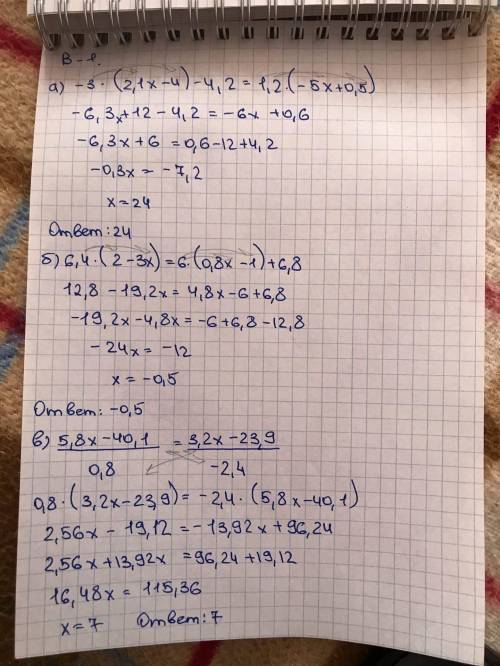 В-1.
а) -3·(2,1x-4)-4,2=1,2·(-5x+0,5)
-6,3x+12-4,2=-6x+0,6
-6,3x+6=0,6-12+4,2
-0,3x=-7,2
x=24
Ответ:24
б) 6,4·(2-3x)=6·(0,8x-1)+6,8
12,8-19,2x=4,8x-6+6,8
-19,2x-4,8x=-6+6,8-12,8
-24x=-12
x=-0,5
Ответ: -0,5
в) 5,8x-40,1 = 3,2x-23,9
0,8 -2,4
0,8·(3,2x-23,9)=-2,4·(5,8x-40,1)
2,56x-19,12=-13,92x+96,24
2,56x+13,92x=96,24+19,12
16,48x=115,36
x=7 Ответ:7